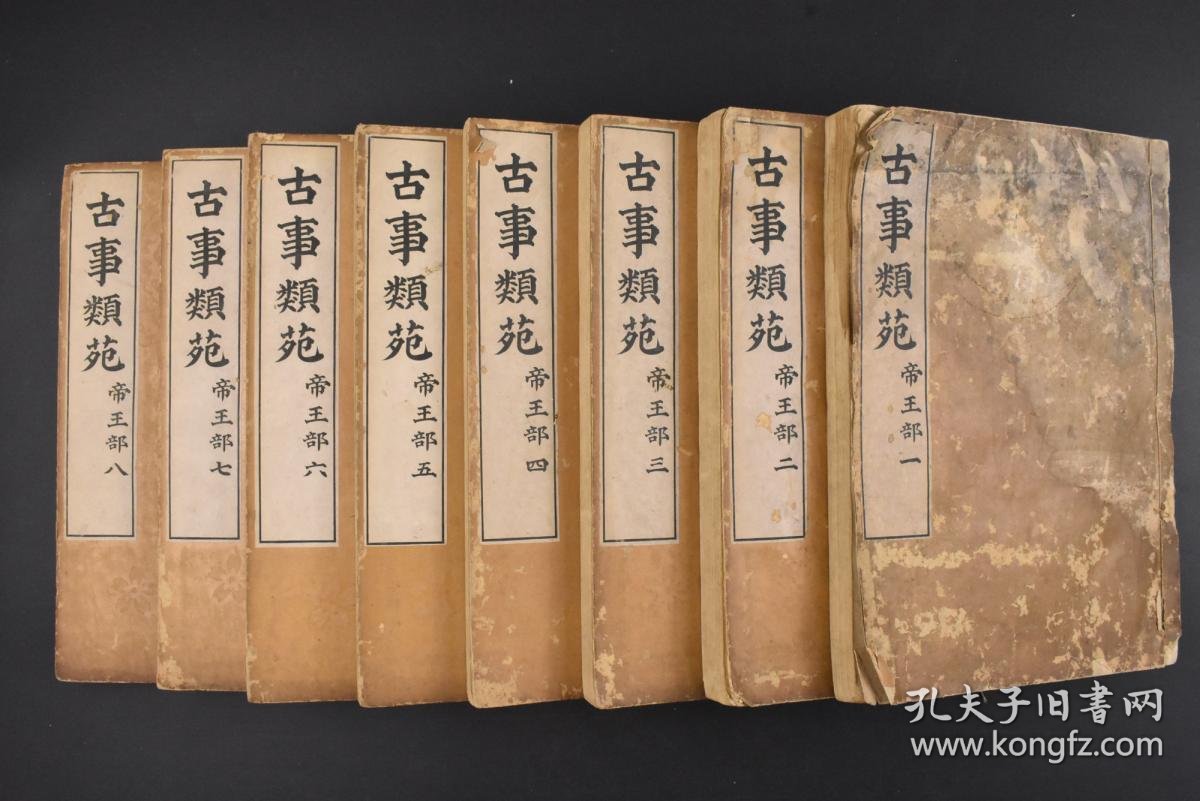 古事類苑 帝王部 一
古事類苑 帝王部 二
古事類苑 帝王部 三
古事類苑 帝王部 四
古事類苑 帝王部 五
古事類苑 帝王部 六
古事類苑 帝王部 七
古事類苑 帝王部 八
孔夫子旧书网
www.kongfz.com